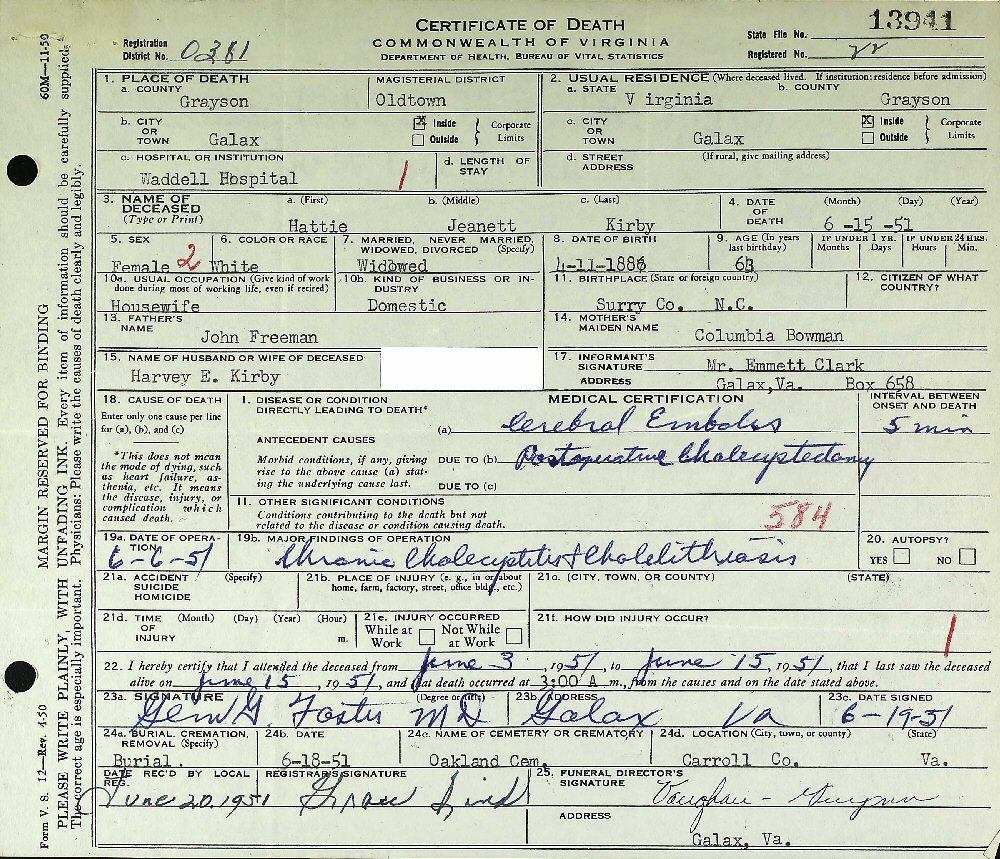 CERTIFICATE OF DEATH
COMMONWEALTH OF VIRGINIA
DEPARTMENT OF HEALTH, BUREAU OF VITAL STATISTICS
Registration District No. 0381
State File No. 13941
Registered No. 22
Form V. S. 12—Rev. 4-50 MARGIN RESERVED FOR BINDING 60M—11-50
PLEASE WRITE PLAINLY, WITH UNFADING INK. Every item of information should be carefully supplied.
The correct age is especially important. Physicians: Please write the causes of death clearly and legibly.
1. PLACE OF DEATH
a. COUNTY Grayson
MAGISTERIAL DISTRICT Oldtown
2. USUAL RESIDENCE (Where deceased lived. If institution: residence before admission)
a. STATE V irginia
b. COUNTY Grayson
b. CITY OR TOWN Galax
X Inside Outside Corporate Limits
c. CITY OR TOWN Galax
X Inside Outside Corporate Limits
c. HOSPITAL OR INSTITUTION Waddell Hospital
1
d. LENGTH OF STAY
d. STREET ADDRESS (If rural, give mailing address)
3. NAME OF DECEASED (Type or Print)
a. (First) Hattie
b. (Middle) Jeanett
c. (Last) Kirby
4. DATE OF DEATH (Month) (Day) (Year) 6 -15 -51
5. SEX Female
2
6. COLOR OR RACE White
7. MARRIED, NEVER MARRIED, WIDOWED, DIVORCED (Specify) Widowed
8. DATE OF BIRTH 4-11-1886
9. AGE (In years last birthday) 63
IF UNDER 1 YR. Months Days
IF UNDER 24 HRS. Hours Min.
10a. USUAL OCCUPATION (Give kind of work done during most of working life, even if retired) Housewife
10b. KIND OF BUSINESS OR INDUSTRY Domestic
11. BIRTHPLACE (State or foreign country) Surry Co. N.C.
12. CITIZEN OF WHAT COUNTRY?
13. FATHER'S NAME John Freeman
14. MOTHER'S MAIDEN NAME Columbia Bowman
15. NAME OF HUSBAND OR WIFE OF DECEASED Harvey E. Kirby
17. INFORMANT'S SIGNATURE Mr. Emmett Clark
ADDRESS Galax,Va. Box 658
18. CAUSE OF DEATH
Enter only one cause per line for (a), (b), and (c)
*This does not mean the mode of dying, such as heart failure, asthenia, etc. It means the disease, injury, or complication which caused death.
MEDICAL CERTIFICATION
INTERVAL BETWEEN ONSET AND DEATH
I. DISEASE OR CONDITION DIRECTLY LEADING TO DEATH*
(a) Cerebral Embolus 5 min
ANTECEDENT CAUSES
Morbid conditions, if any, giving rise to the above cause (a) stating the underlying cause last.
DUE TO (b) Postoperative Cholecystectomy
DUE TO (c)
11. OTHER SIGNIFICANT CONDITIONS
Conditions contributing to the death but not related to the disease or condition causing death.
584
19a. DATE OF OPERATION 6-6-51
19b. MAJOR FINDINGS OF OPERATION Chronic Cholecyptitis & Cholelithiasis
20. AUTOPSY? YES NO
21a. ACCIDENT SUICIDE HOMICIDE (Specify)
21b. PLACE OF INJURY (e. g., in or about home, farm, factory, street, office bldg., etc.)
21c. (CITY, TOWN, OR COUNTY) (STATE)
21d. TIME OF INJURY (Month) (Day) (Year) (Hour) m.
21e. INJURY OCCURRED While at Work Not While at Work
21f. HOW DID INJURY OCCUR?
1
22. I hereby certify that I attended the deceased from June 3, 1951, to June 15, 1951, that I last saw the deceased
alive on June 15, 1951, and that death occurred at 3:00 A m., from the causes and on the date stated above.
23a. SIGNATURE (Degree or title) Foster MD
23b. ADDRESS Galax Va
23c. DATE SIGNED 6-19-51
24a. BURIAL, CREMATION, REMOVAL (Specify) Burial.
24b. DATE 6-18-51
24c. NAME OF CEMETERY OR CREMATORY Oakland Cem.
24d. LOCATION (City, town, or county) (State) Carroll Co. Va.
DATE REC'D BY LOCAL REG. June 20, 1951
REGISTRAR'S SIGNATURE
25. FUNERAL DIRECTOR'S SIGNATURE Vaughan -
ADDRESS Galax, Va.